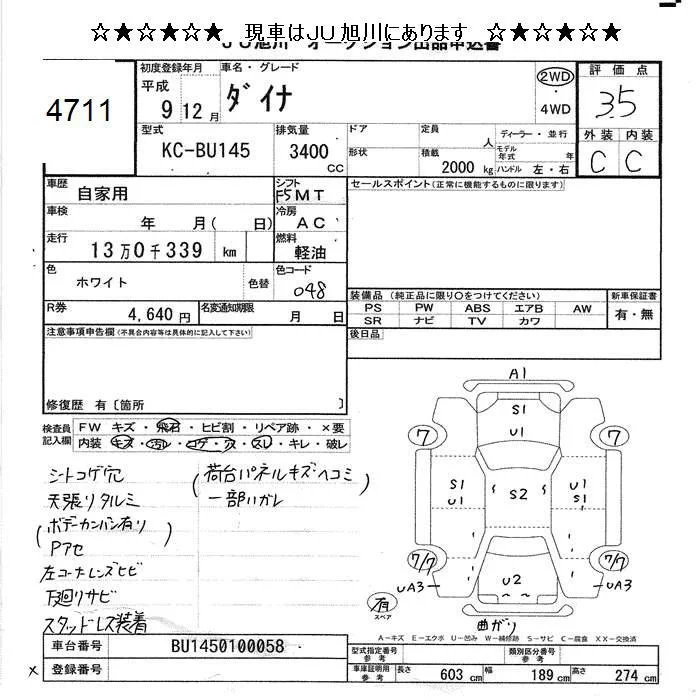 ☆★☆★☆★ 現車はJU旭川にあります ☆★☆★☆★
JU旭川 オークション出品申込書
4711
初度登録年月
平成
9 12月
車名・グレード
ダイナ
2WD
・
4WD
評価点
3.5
外装 内装
C C
型式
KC-BU145
排気量
3400
CC
ドア
形状
定員
人
積載
2000 kg
ディーラー・並行
モデル年式 年
ハンドル 左・右
車歴
自家用
シフト
F5MT
車検
年 月( 日)
冷房
AC
走行
13万0千339 km
燃料
軽油
色
ホワイト
色替
色コード
048
R券
4,640円
名変通知期限
月 日
セールスポイント(正常に機能するものに限ります)
装備品(純正品に限り○をつけてください)
PS PW ABS エアB AW
SR ナビ TV カワ
新車保証書
有・無
後日品
注意事項申告欄(不具合内容等は具体的に記入して下さい)
修復歴 有〔箇所 〕
検査員記入欄
FW キズ・飛石・ヒビ割・リペア跡・×要
内装・キズ・汚れ・コゲ・穴・スレ・キレ・破レ
シートコゲ穴
天張りタルミ
(ボデーカンバン有り)
Pアセ
左コーナーレンズヒビ
下廻りサビ
スタッドレス装着
(荷台パネルキズ・ヘコミ)
一部ハガレ
A1
S1
U1
7 7
S1
U1
S2
U1
S1
7/7 7/7
UA3 UA3
U2
曲がり
有
スペア
A-キズ E-エクボ U-凹み W-補修跡 S-サビ C-腐食 XX-交換済
車台番号
BU1450100058
× 登録番号
型式指定番号
参考
類別区分番号
参考
車庫証明用
参考
長さ 603 cm 幅 189 cm 高さ 274 cm